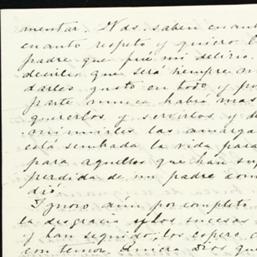 mentar. Uds. saben cuanto
cuanto respeto y quiero
padre que fué mi delirio
decirlo que será siempre
darles gusto en todo y por
parte nunca habrá mas
quererlos y servirlos y
las amarga
está sembrada la vida para
para aquellos que han
perdida de un padre como
dió.
Ignoro aun por completo
la desgracia y los sucesos
y han seguido; los espero
con temor. Quiera Dios que